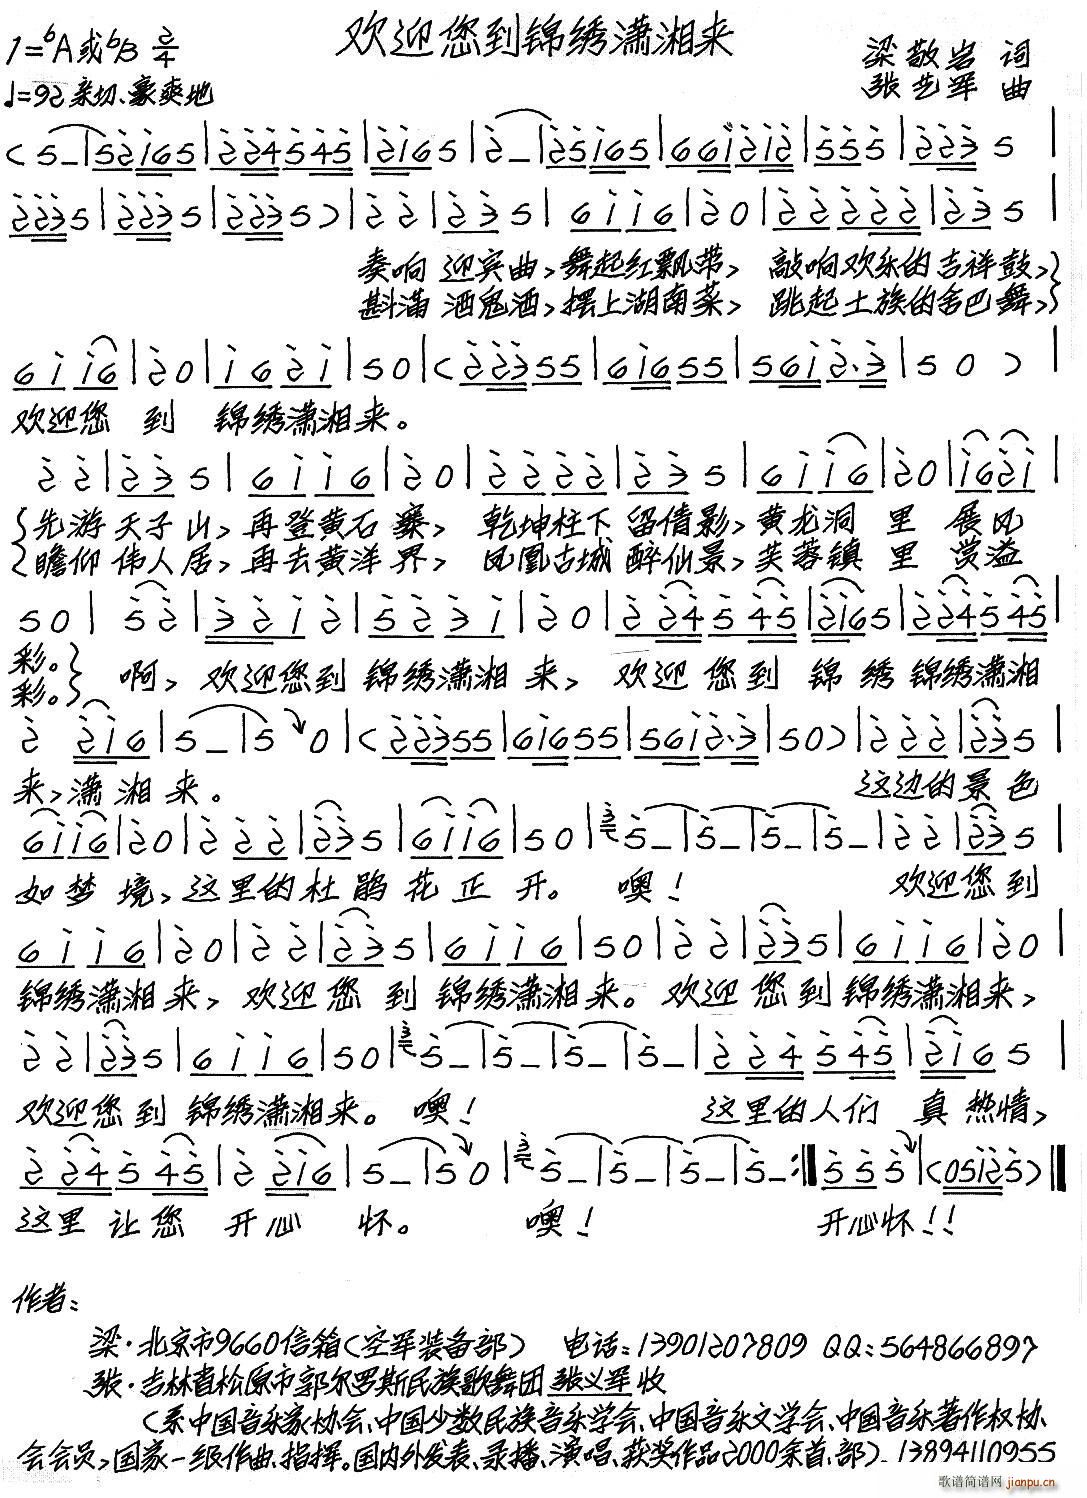 欢迎您到锦绣潇湘来
1=ᵇA或ᵇB 2/4
梁敬岩 词
♩=92 亲切、豪爽地
张艺军 曲
奏响 迎宾曲,舞起红飘带, 敲响欢乐的吉祥鼓,
斟满 酒鬼酒,摆上湖南菜, 跳起土族的舍巴舞,
欢迎您 到 锦绣潇湘来。
先游 天子 山,再登黄石 寨, 乾坤柱下 留倩影,黄龙洞 里 展风
瞻仰 伟人 居,再去黄洋 界, 凤凰古城 醉仙景,芙蓉镇 里 赏溢
彩。
彩。
啊, 欢迎您到 锦绣潇湘 来, 欢迎 您到 锦 绣 锦绣潇湘
来,潇 湘 来。 这边的景色
如梦 境,这里的杜 鹃 花 正 开。 噢! 欢迎您到
锦绣潇湘 来, 欢迎 您 到 锦绣潇湘来。 欢迎 您到 锦绣潇湘来,
欢迎您到 锦绣潇湘来。 噢! 这里的人们 真 热情,
这里 让您 开心 怀。 噢! 开心怀!!
作者:
梁·北京市9660信箱(空军装备部) 电话:13901207809 QQ:564866897
张·吉林省松原市郭尔罗斯民族歌舞团 张义军 收
(系中国音乐家协会、中国少数民族音乐学会、中国音乐文学会、中国音乐著作权协
会会员,国家一级作曲、指挥。国内外发表、录播、演唱、获奖作品2000余首、部) 13894110955
歌谱简谱网
jianpu.cn